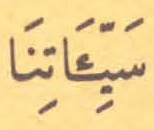 سَيِّـَٔاتِنَا